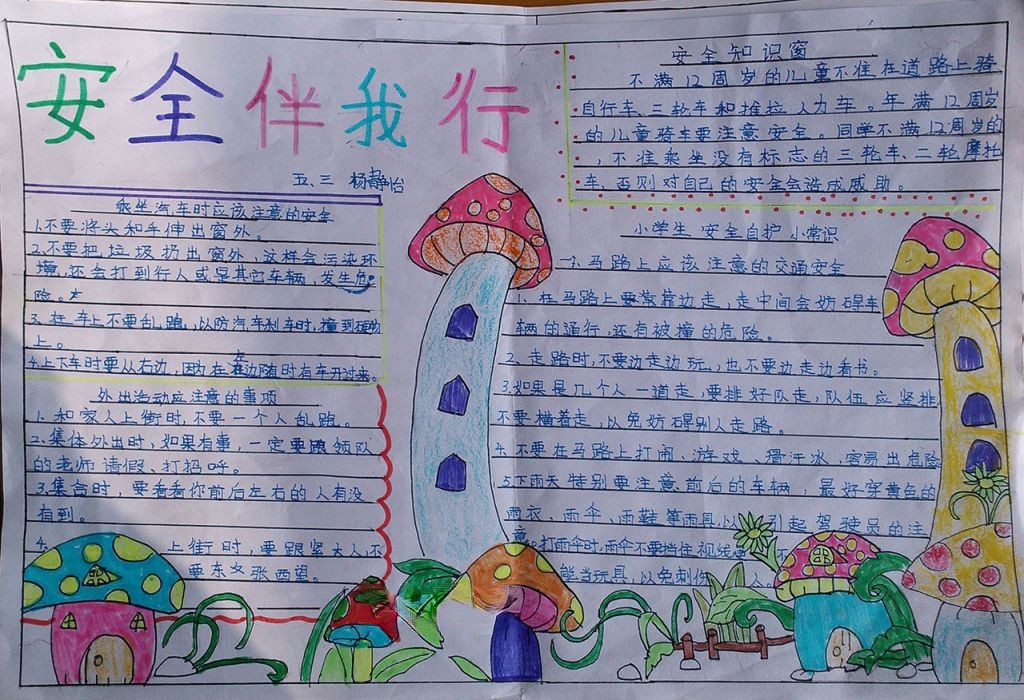 安全伴我行
五、三 杨静怡
乘坐汽车时应该注意的安全
1.不要将头和手伸出窗外。
2.不要把垃圾扔出窗外,这样会污染环
境,还会打到行人或是其它车辆,发生危
险。
3.在车上不要乱跑,以防汽车刹车时,撞到硬物
上。
4.上下车时要从右边,因为在左边随时有车开过来。
外出活动应注意的事项
1.和家人上街时,不要一个人乱跑。
2.集体外出时,如果有事,一定要跟领队
的老师请假、打招呼。
3.集合时,要看看你前后左右的人有没
有到。
4. 上街时,要跟紧大人,不
要东久张西望。
安全知识窗
不满12周岁的儿童不准在道路上骑
自行车、三轮车和推拉人力车。年满12周岁
的儿童骑车要注意安全。同学不满12周岁的
,不准乘坐没有标志的三轮车、二轮摩托
车、否则对自己的安全会造成威助。
小学生 安全自护 小常识
一、马路上应该注意的交通安全
1、在马路上要常靠边走,走中间会妨碍车
辆的通行,还有被撞的危险。
2、走路时,不要边走边玩,也不要边走边看书。
3.如果是几个人一道走,要排好队走,队伍应竖排
不要横着走,以免妨碍别人走路。
4.不要在马路上打闹、游戏、滑汗冰,容易出危险
5.下雨天特别要注意前后的车辆,最好穿黄色的
雨衣、雨伞、雨鞋等雨具,以 引起驾驶员的注
意。打雨伞时,雨伞不要挡住视线 不
能当玩具,以免刺伤 人。